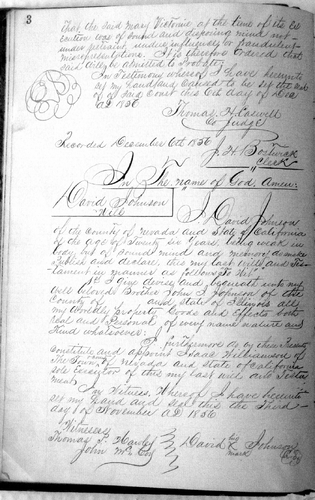 3
that the said Mary Victoria, at the time of its Ex
ecution was of sound and disposing mind not
under restraint, undue influence, or fraudulent
misrepresentations. It is therefore ordered that
said will be admitted to Probate.
In testimony whereof I have hereunto
set my hand and caused to be set the seal
of said Court this 6th day of Dec
AD 1856
Thomas H. Caswell
Co Judge
Recorded December 6th 1856
J. H. Bostwick
Clerk
In The name of God, Amen:
David Johnson
Will
I David Johnson
of the County of Nevada and State of California
of the age of Twenty six Years, being weak in
body but of sound mind and memory do make
publish and declare, this my last will and Tes-
tament in manner as following to wit
1st I give devise and bequeath unto my
well beloved Brother John Johnson of the
County of and State of Illinois all
my Worldly property Goods and Effects both
Real and Personal of every name nature and
Kind whatsoever:
I furthermore do by these Presents
constitute and appoint Isaac Williamson of
the Town of Nevada and State of California
sole executor of this my last will and Testa
ment
In Witness Whereof I have hereunto
set my hand and seal this the Third
day of November AD 1856
Witnesses
Thomas P. Hawley
John McCoy
David his X mark Johnson